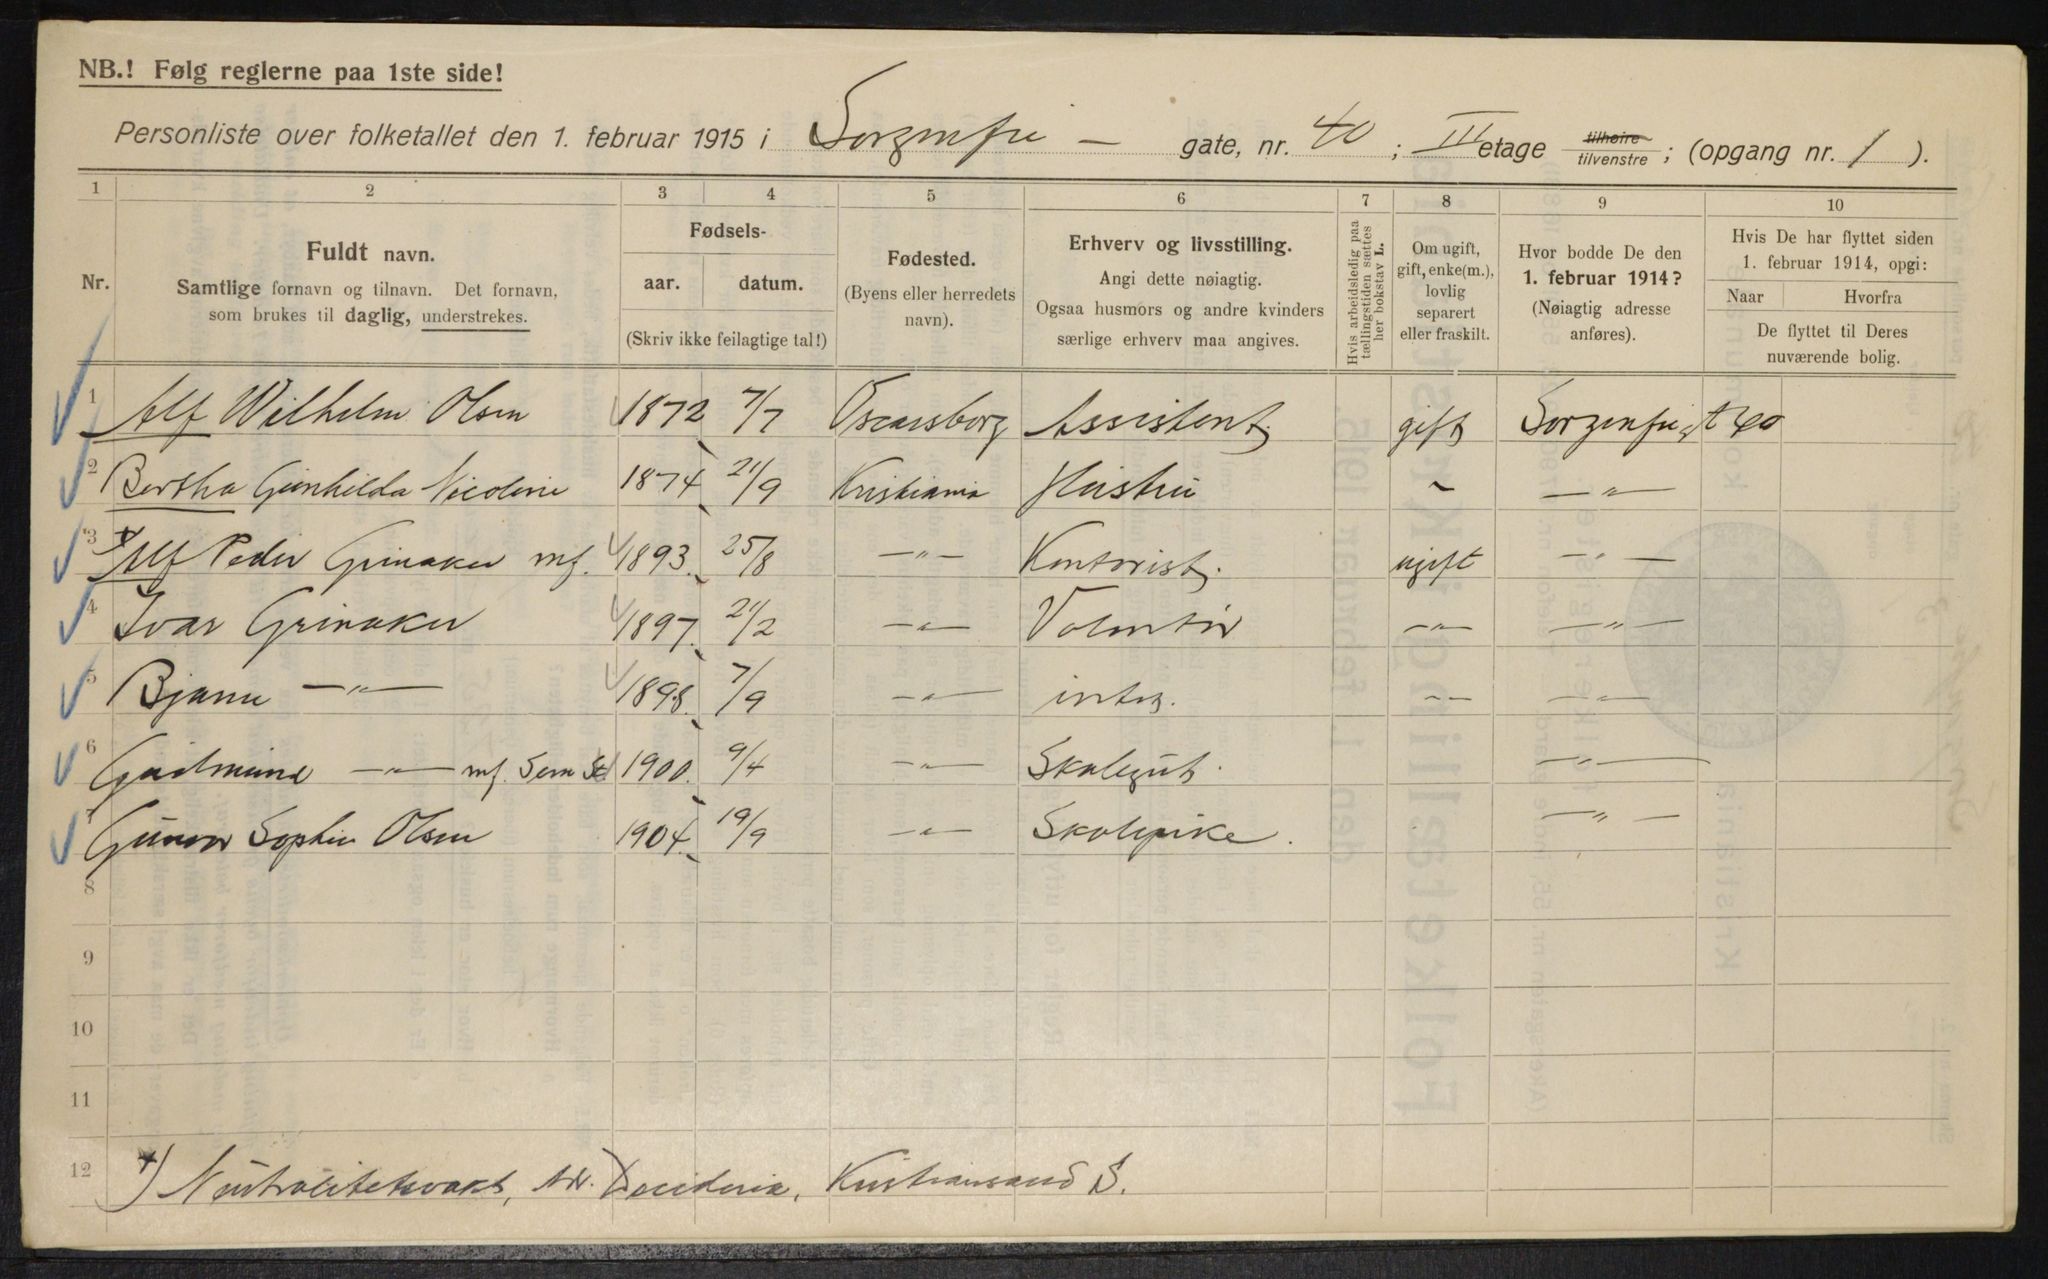 NB.! Følg reglerne paa 1ste side!
Personliste over folketallet den 1. februar 1915 i Sorgenfri — gate, nr. 40 ; III etage tilhøire tilvenstre ; (opgang nr. 1 ).
1 2 3 4 5 6 7 8 9 10
Nr.
Fuldt navn.
Samtlige fornavn og tilnavn. Det fornavn,
som brukes til daglig, understrekes.
Fødsels-
aar. datum.
(Skriv ikke feilagtige tal!)
Fødested.
(Byens eller herredets
navn).
Erhverv og livsstilling.
Angi dette nøiagtig.
Ogsaa husmors og andre kvinders
særlige erhverv maa angives.
Hvis arbeidsledig paa
tællingstiden sættes
her bokstav L.
Om ugift,
gift, enke(m.),
lovlig
separert
eller fraskilt.
Hvor bodde De den
1. februar 1914?
(Nøiagtig adresse
anføres).
Hvis De har flyttet siden
1. februar 1914, opgi:
Naar Hvorfra
De flyttet til Deres
nuværende bolig.
1 Alf Wilhelm Olsen 1872 7/7 Oscarsborg Assistent gift Sorgenfrigt 40
2 Bertha Gunhilda Nicoline 1874 21/9 Kristiania Hustru — " —
3 Alf Peder Grinaker mf. 1893. 25/8 — " — Kontorist. ugift — " —
4 Ivar Grinaker 1897. 21/2 — " — Volontør — " — — " —
5 Bjarne — " — 1898. 7/9 — " — intet. — " — — " —
6 Gudmund — " — mf. Sem St. 1900. 9/4 — " — Skolegut. — " —
7 Gunvor Sophie Olsen 1904. 19/9 — " — Skolepike. — " —
8
9
10
11
12 *) Nøitralitetsvakt, Kristiansand S.